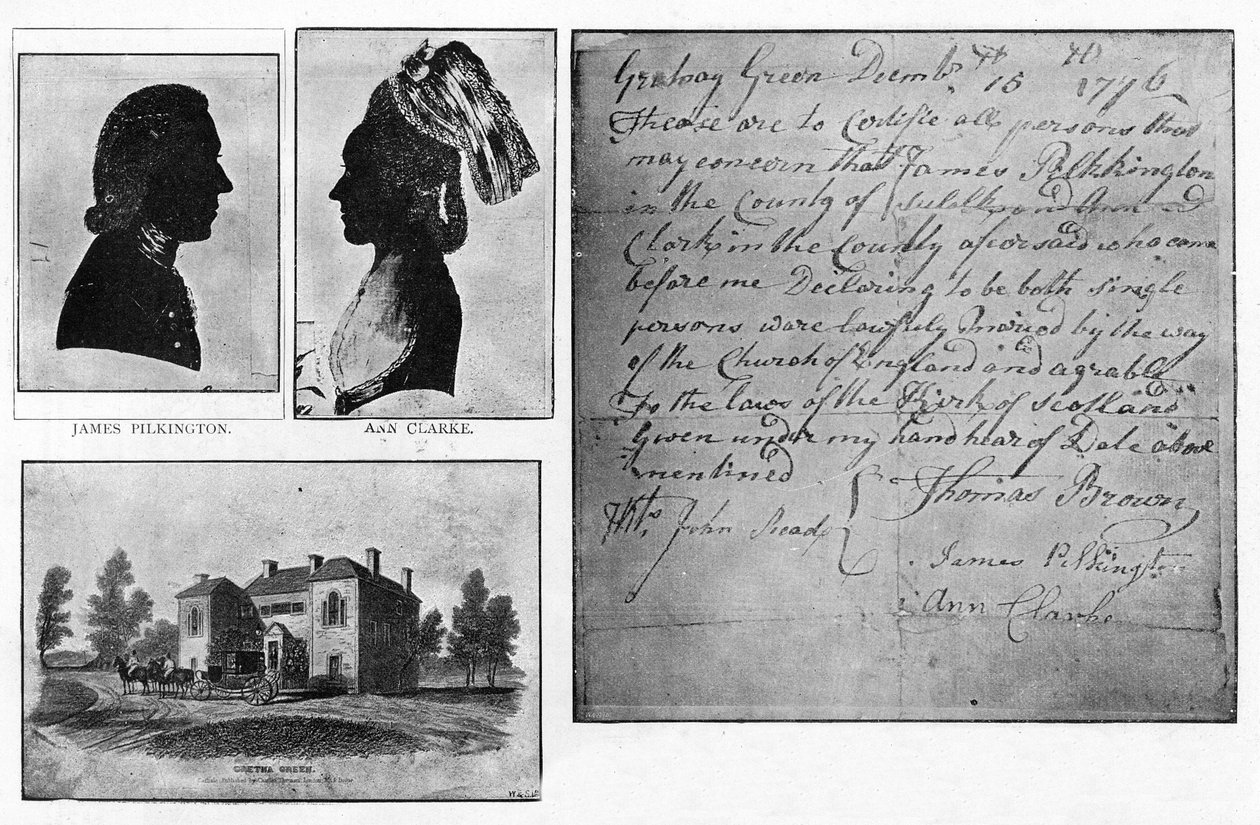 JAMES PILKINGTON.
ANN CLARKE.
GRETNA GREEN.
Carlisle. Published by Charles Thurnam, London,
W & S Ld
Greatnay Green Decmbr 15 1776
Thease are to Certifie all persons that
may concern that James Pilkkington
in the County of Sufolk and Ann
Clark in the County aforsaid who came
before me Declaring to be both single
persons ware lawfuly Maried by the way
of the Church of England and agrable
To the laws of the Kirk of Scotland
Given under my hand hear of Date above
mentined
Thomas Brown
Wits John Read
James Pilkington
Ann Clarke